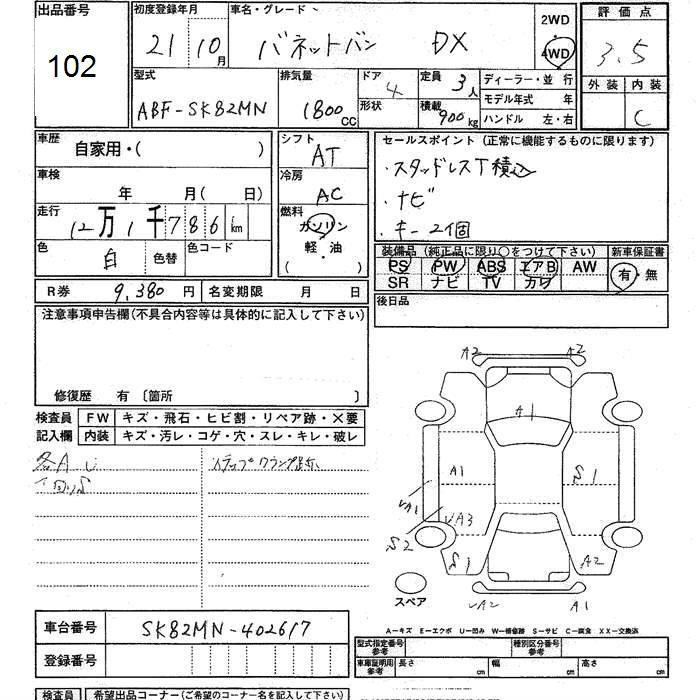 出品番号
102
初度登録年月
21 10月
車名・グレード
バネットバン DX
2WD
4WD
評価点
3.5
外装 内装
C
型式
ABF-SK82MN
排気量
1800cc
ドア
4
形状
定員
3人
積載
900kg
ディーラー・並 行
モデル年式 年
ハンドル 左・右
車歴
自家用・( )
車検
年 月( 日)
走行
12万1千786km
色
白
色替
色コード
シフト
AT
冷房
AC
燃料
ガソリン
軽・油
( )
セールスポイント (正常に機能するものに限ります)
・スタッドレスT積込
・ナビ
・キー2個
装備品 (純正品に限り○をつけて下さい)
PS PW ABS エアB AW
SR ナビ TV カワ
新車保証書
有・無
R券 9,380円
名変期限 月 日
後日品
注意事項申告欄(不具合内容等は具体的に記入して下さい)
修復歴 有 〔箇所 〕
検査員
記入欄
FW キズ・飛石・ヒビ割・リペア跡・X要
内装 キズ・汚レ・コゲ・穴・スレ・キレ・破レ
A2 A2
A1
A1 S1
VA1
VA3
S2
S1 A2
VA2 A1
スペア
A-キズ E-エクボ U-凹み W-補修跡 S-サビ C-腐食 XX-交換済
車台番号
SK82MN-402617
登録番号
型式指定番号
参考
種別区分番号
参考
車庫証明用
参考
長さ cm
幅 cm
高さ cm
検査員
希望出品コーナー(ご希望のコーナー名を記入下さい)